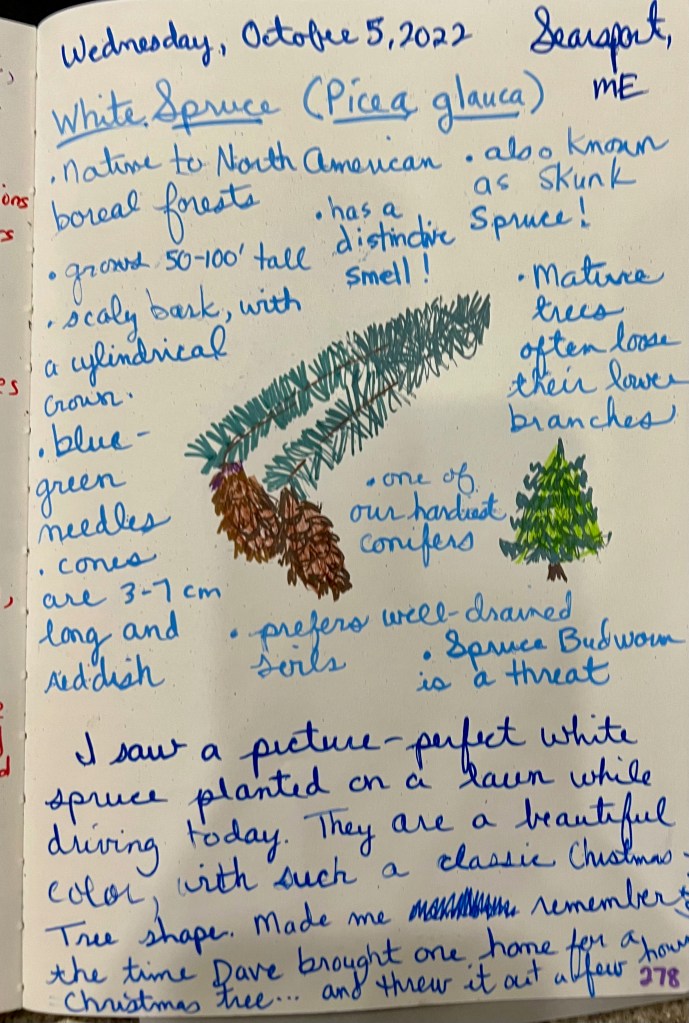 Wednesday, October 5, 2022
Searsport,
ME
White Spruce (Picea glauca)
. native to North American
boreal forests
. also known
as Skunk
Spruce!
. has a
distinctive
smell!
. grows 50-100' tall
. scaly bark, with
a cylindrical
crown.
. blue-
green
needles
. cones
are 3-7 cm
long and
reddish
. Mature
trees
often loose
their lower
branches
. one of
our hardiest
conifers
. prefers well-drained
soils
. Spruce Budworm
is a threat
I saw a picture-perfect white
spruce planted on a lawn while
driving today. They are a beautiful
color, with such a classic Christmas
Tree shape. Made me remember
the time Dave brought one home for a
Christmas tree... and threw it out a few hours
278
ons
rs
es